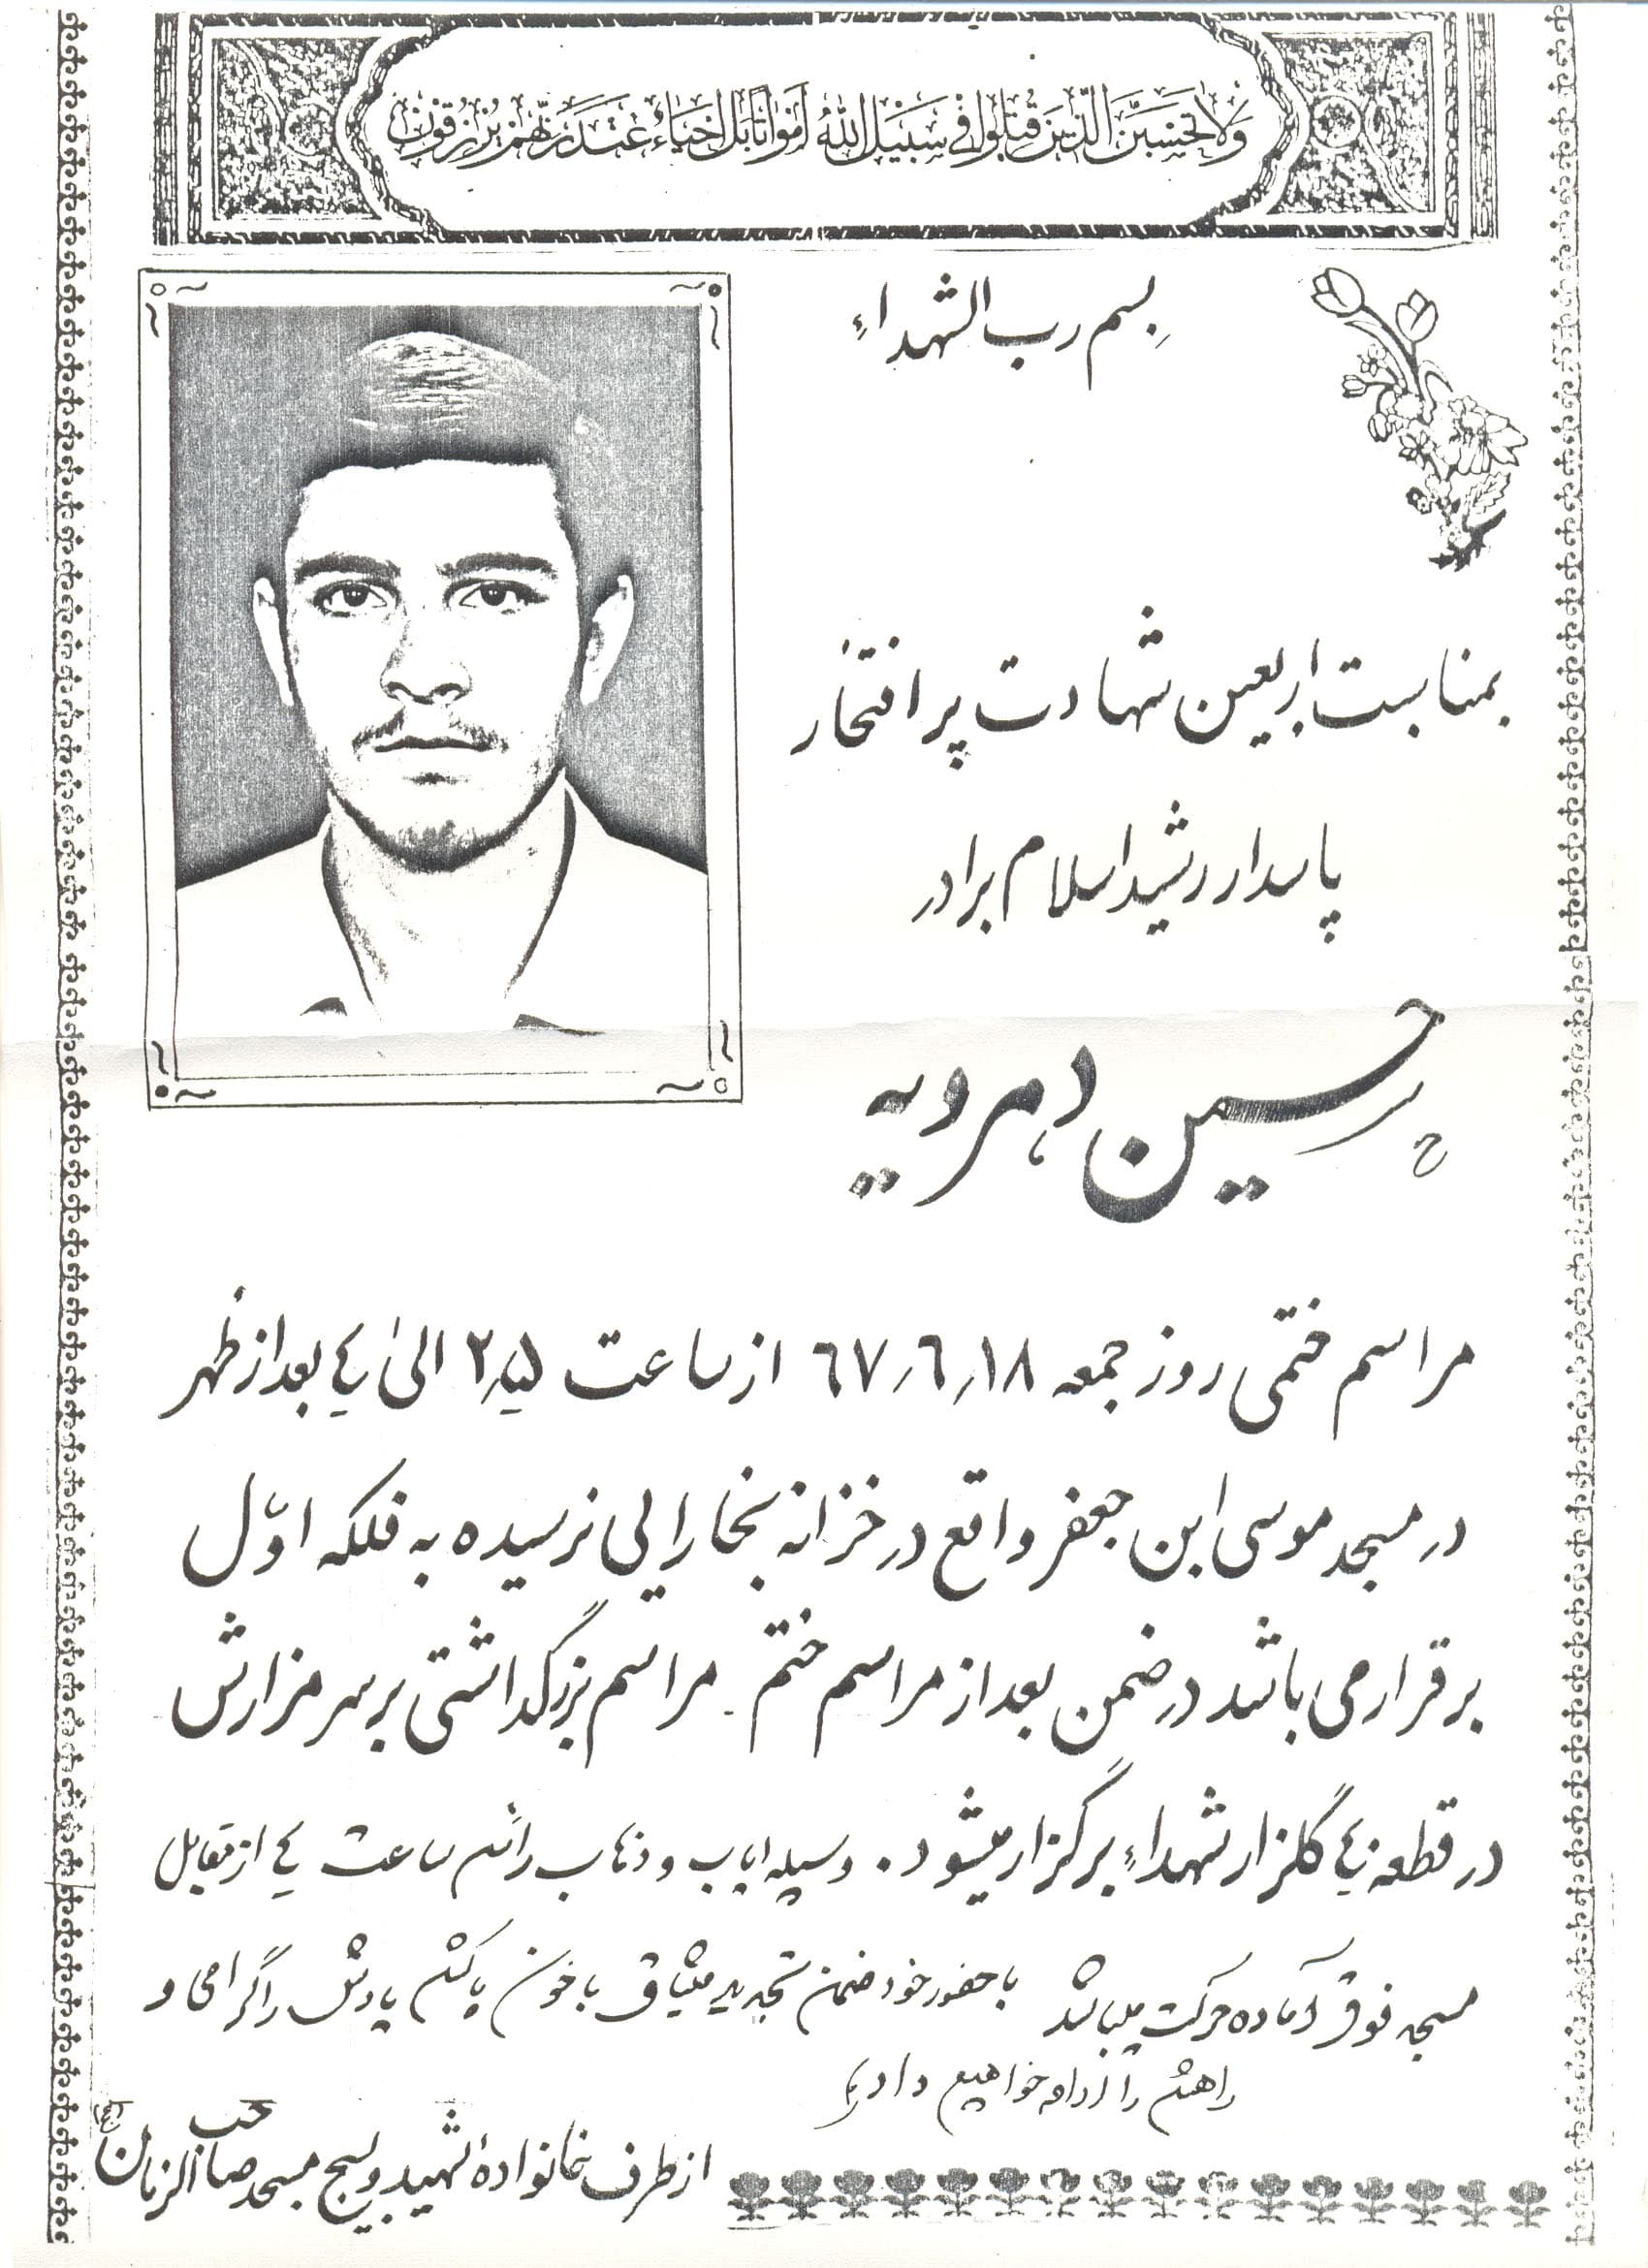 وَلَا تَحْسَبَنَّ الَّذِينَ قُتِلُوا فِي سَبِيلِ اللَّهِ أَمْوَاتًا بَلْ أَحْيَاءٌ عِنْدَ رَبِّهِمْ يُرْزَقُونَ
بِسم رب الشهداءِ
بمناسبت اربعین شهادت پر افتخار
پاسدار رشید اسلام برادر
حسین دهرویه
مراسم ختمی روز جمعه ۱۸٫۶٫۶۷ از ساعت ۲٫۵ الی ۴ بعد از ظهر
در مسجد موسی ابن جعفر واقع در خزانه بخارایی نرسیده به فلکه اوّل
برقرار می باشد در ضمن بعد از مراسم ختم - مراسم بزرگداشتی بر سر مزارش
در قطعه ۴۰ گلزار شهداءِ برگزار میشود. وسیله ایاب و ذهاب رأس ساعت ۴ از مقابل
مسجد فوق آماده حرکت میباشد با حضور خود ضمن تجدید میثاق با خون پاکش یادش را گرامی و
راهش را ادامه خواهیم داد
از طرف خانواده شهید و بسیج مسجد صاحب الزمان